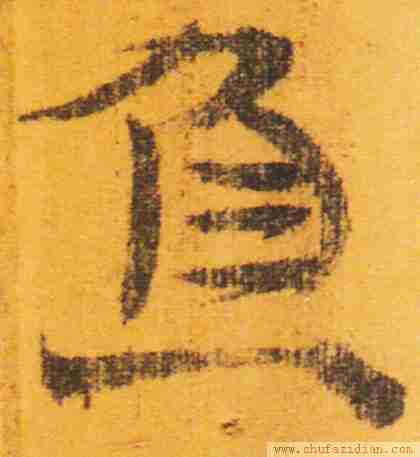 負
www.chufazidian.com